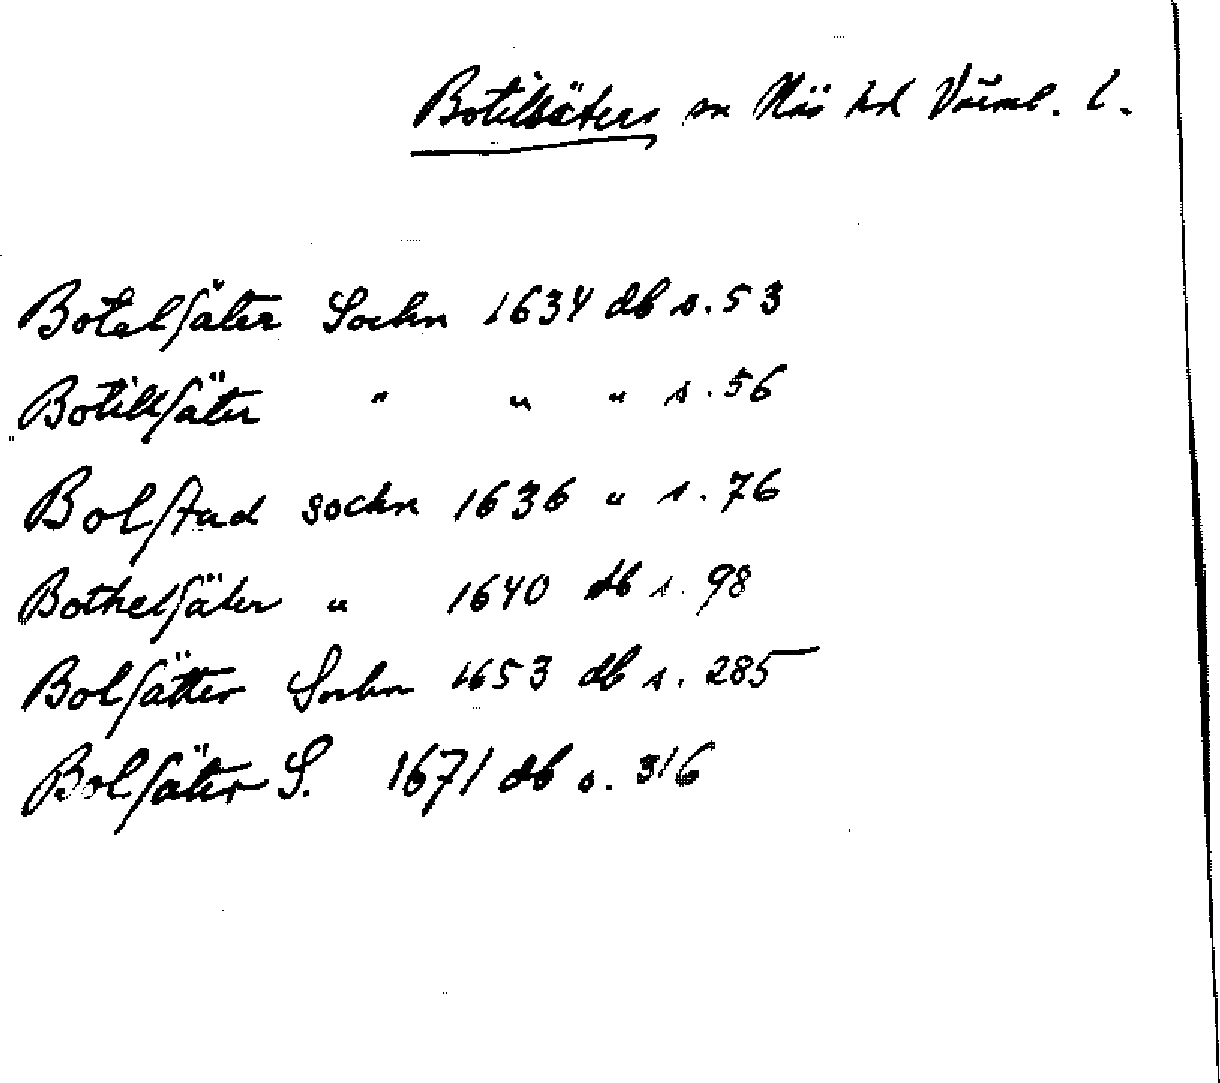 Botilsäters sn Näs hd Värml. l.
Botelsäter Sochn 1634 db s. 53
Botillsäter " " " s. 56
Bolstad sochn 1636 " s. 76
Bothelsäter " 1640 db s. 98
Bolsätter Sochn 1653 db s. 285
Bolsäter S. 1671 db s. 316